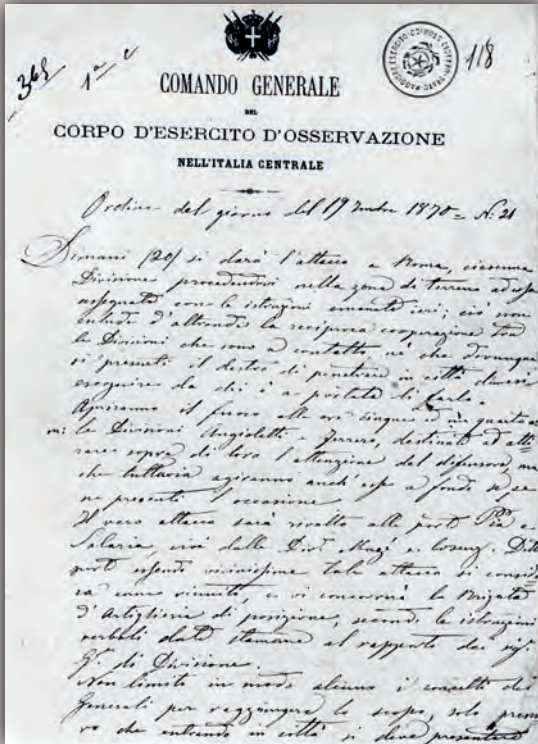 365
1ª e
118
COMANDO GENERALE
DEL
CORPO D'ESERCITO D'OSSERVAZIONE
NELL'ITALIA CENTRALE
Ordine del giorno del 19 7mbre 1870 = N: 21
Dimani (20) si darà l'attacco a Roma, ciascuna
Divisione procedendovi nella zona di terreno ad essa
assegnata con le istruzioni emanate ieri; ciò non
esclude d'altronde la reciproca cooperazione tra
le Divisioni che sono a contatto, nè che dovunque
si presenti il destro di penetrare in città
eseguire da chi è a portata di farlo.
Apriranno il fuoco alle ore cinque ed un quarto
le Divisioni Angioletti e Ferrero, destinate ad atti-
rare sopra di loro l'attenzione del difensore, ma
che tuttavia agiranno anch'esse a fondo se se
ne presenti l'occasione
Il vero attacco sarà rivolto alle porte Pia e
Salaria, cioè dalle Divi Mazè e Cosenz. Dette
porte essendo vicinissime tale attacco si consid
ra come riunito, e vi concorrerà la Brigata
d'Artiglieria di posizione, secondo le istruzioni
verbali date stamane al rapporto dei sigi
Gli di Divisione.
Non limito in modo alcuno i concetti dei
Generali per raggiungere lo scopo, solo prem
vo che entrando in città si deve presentare